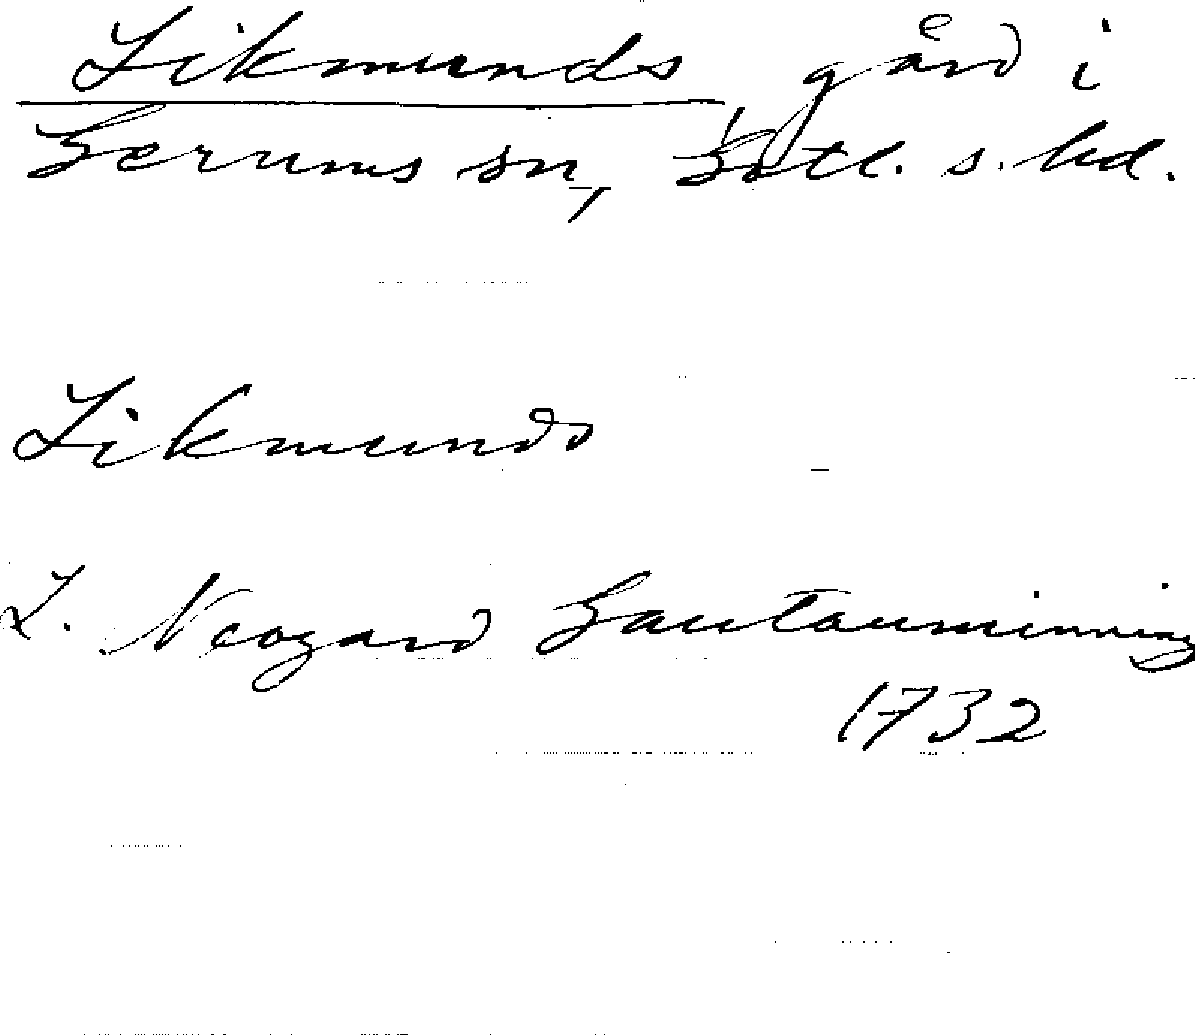 Likmunds gård i
Gerums sn, Gotl. s. hd.
Likmunds
L. Neogard Gautauminning
1732